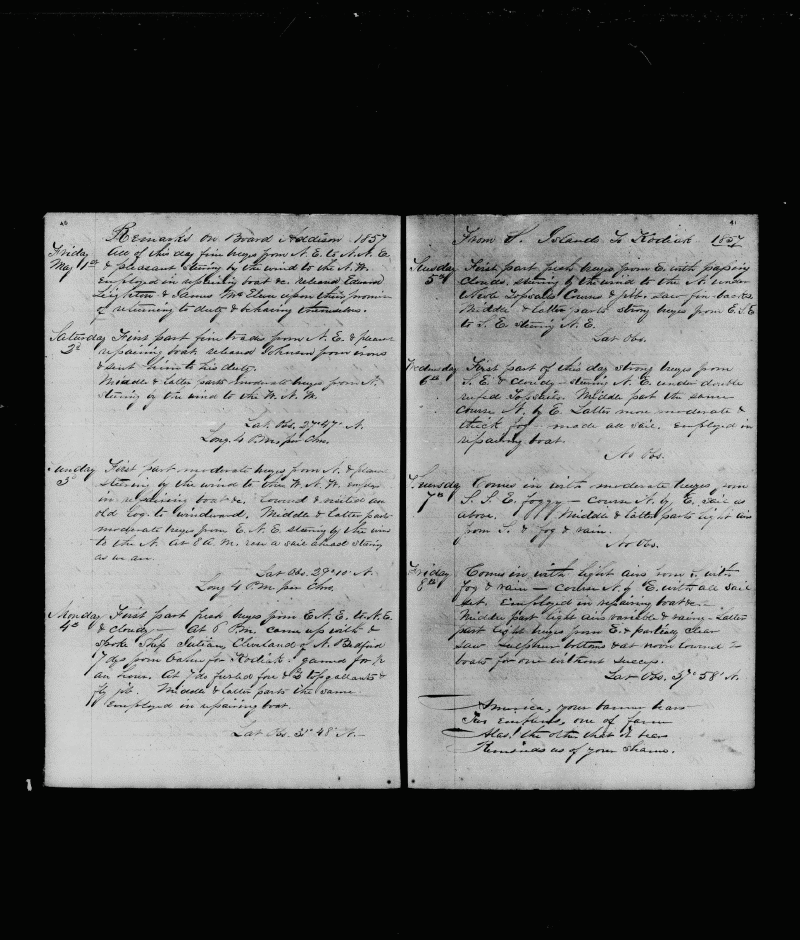 Remarks on Board Addison 1857
Friday May 1st All of this day fine breezes from N. E. to N. N. E.
& pleasant steering by the wind to the N. W.
employed in repairing boat &c. released Edward
Leighton & James McElwee upon their promise
of returning to duty & behaving themselves.
Saturday 2d First part fine trades from N. E. & pleasant
repairing boat. released Johnson from irons
& sent him to his duty.
Middle & latter parts moderate breezes from N.
steering by the wind to the W. N. W.
Lat. Obs. 27° 47' N.
Long 4 P.M. per Chro.
Sunday 3d First part moderate breezes from N. & pleasant
steering by the wind to the W. N. W. employed
in repairing boat &c. lowered & visited an
old log to windward. Middle & latter parts
moderate breezes from E. N. E. steering by the wind
to the N. At 8 A. M. saw a sail ahead steering
as we are.
Lat Obs. 29° 10' N.
Long 4 P.M. per Chro.
Monday 4th First part fresh breezes from E. N. E. to N. E.
& cloudy — At 6 P.M. came up with &
spoke Ship Julian, Cleveland of N. Bedford
7 dys from for Kodiak: gammed for ½
an hour. At 7 do furled fore & top gallants &
fly jib. Middle & latter parts the same.
employed in repairing boat.
Lat Obs. 31° 48' N.
41
From S. Islands to Kodiak 1857
Tuesday 5th First part fresh breezes from E. with passing
clouds, steering by the wind to the N. under
whole Topsails Courses & jib. Saw fin-backs
Middle & latter parts strong breezes from E. S. E.
to S. E. steering N. E.
Lat Obs.
Wednesday 6th First part of this day strong breezes from
S. E. & cloudy — steering N. E. under double
reefed Topsails. Middle part the same
course N. by E. Latter more moderate &
thick fog — made all sail. employed in
repairing boat.
No Obs.
Thursday 7th Comes in with moderate breezes from
S. S. E. foggy — course N. by E. sail as
above. Middle & latter parts light airs
from S. & fog & rain.
No Obs.
Friday 8th Comes in with light airs from S. with
fog & rain — course N. by E. with all sail
set. Employed in repairing boat &c.
Middle part light airs variable & rainy — Latter
part light breezes from E. & partially clear
saw sulphur bottoms & at noon lowered 2
boats for one without success.
Lat Obs. 37° 58' N.
America, your banner bears
Two emblems, one of fame
Alas! the other that it bears
Reminds us of your shame.